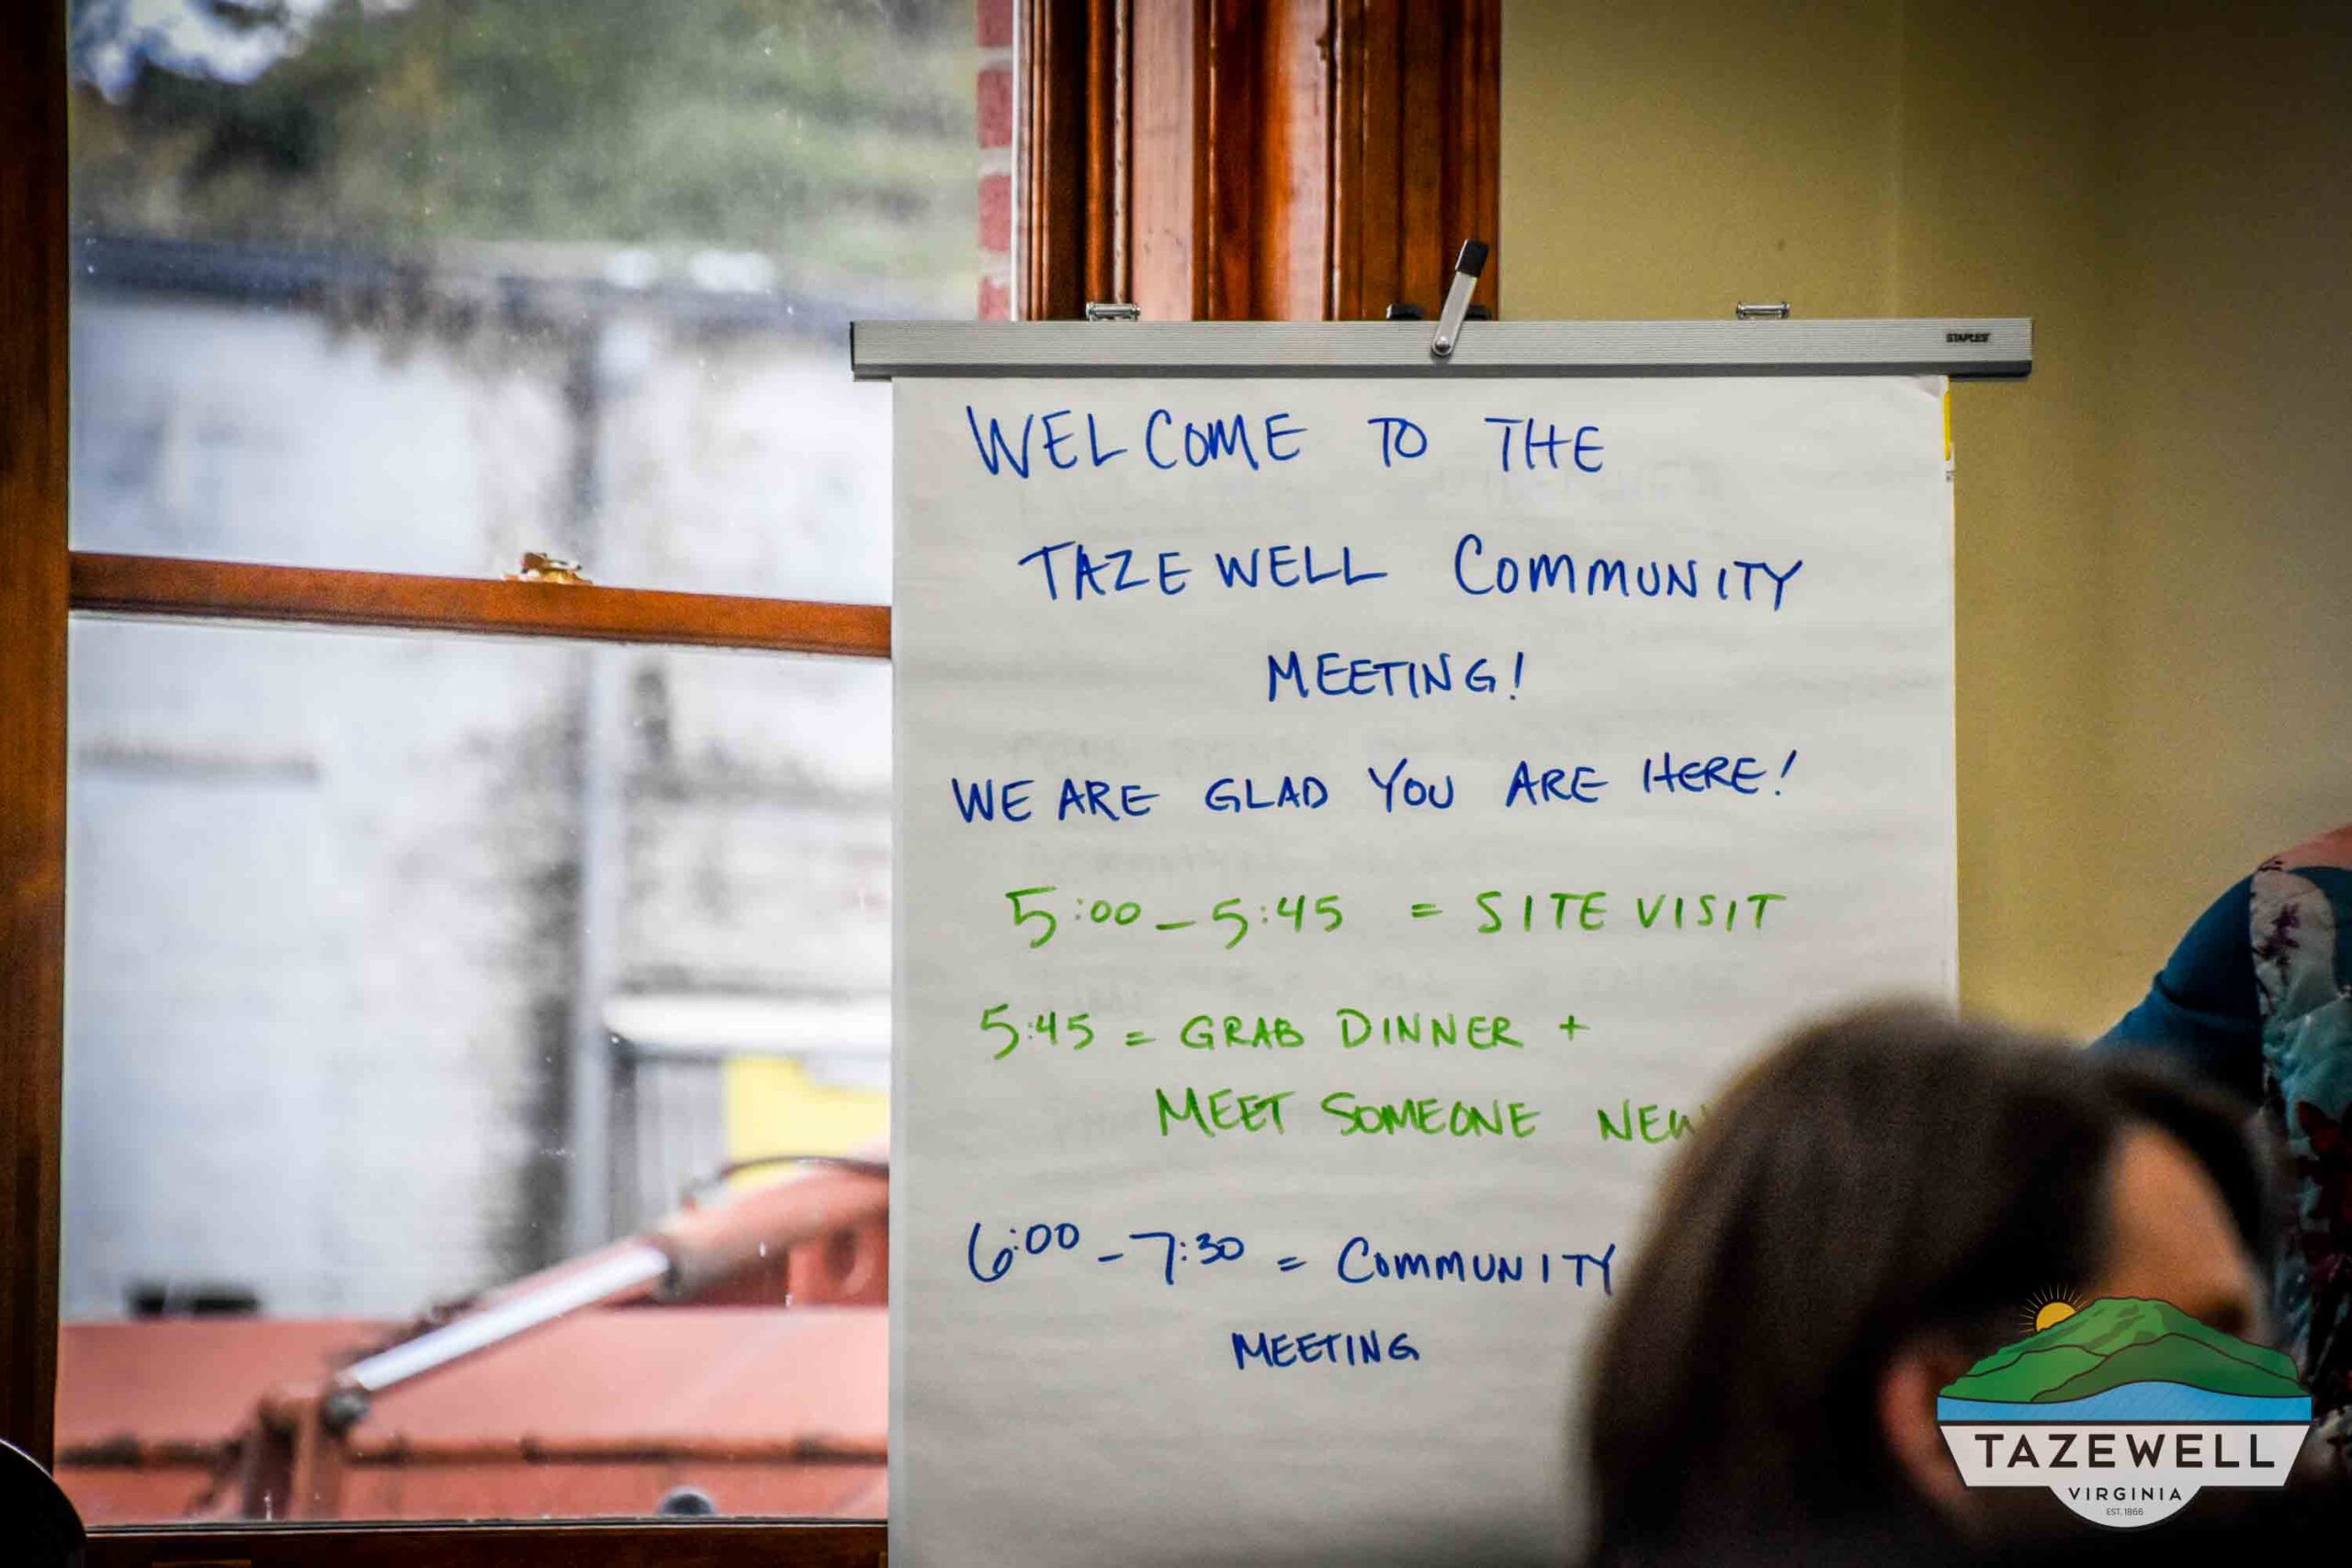 STAPLES
WELCOME TO THE
TAZEWELL COMMUNITY
MEETING!
WE ARE GLAD YOU ARE HERE!
5:00 - 5:45 = SITE VISIT
5:45 = GRAB DINNER +
MEET SOMEONE NEW
6:00 - 7:30 = COMMUNITY
MEETING
TAZEWELL
VIRGINIA
EST. 1866